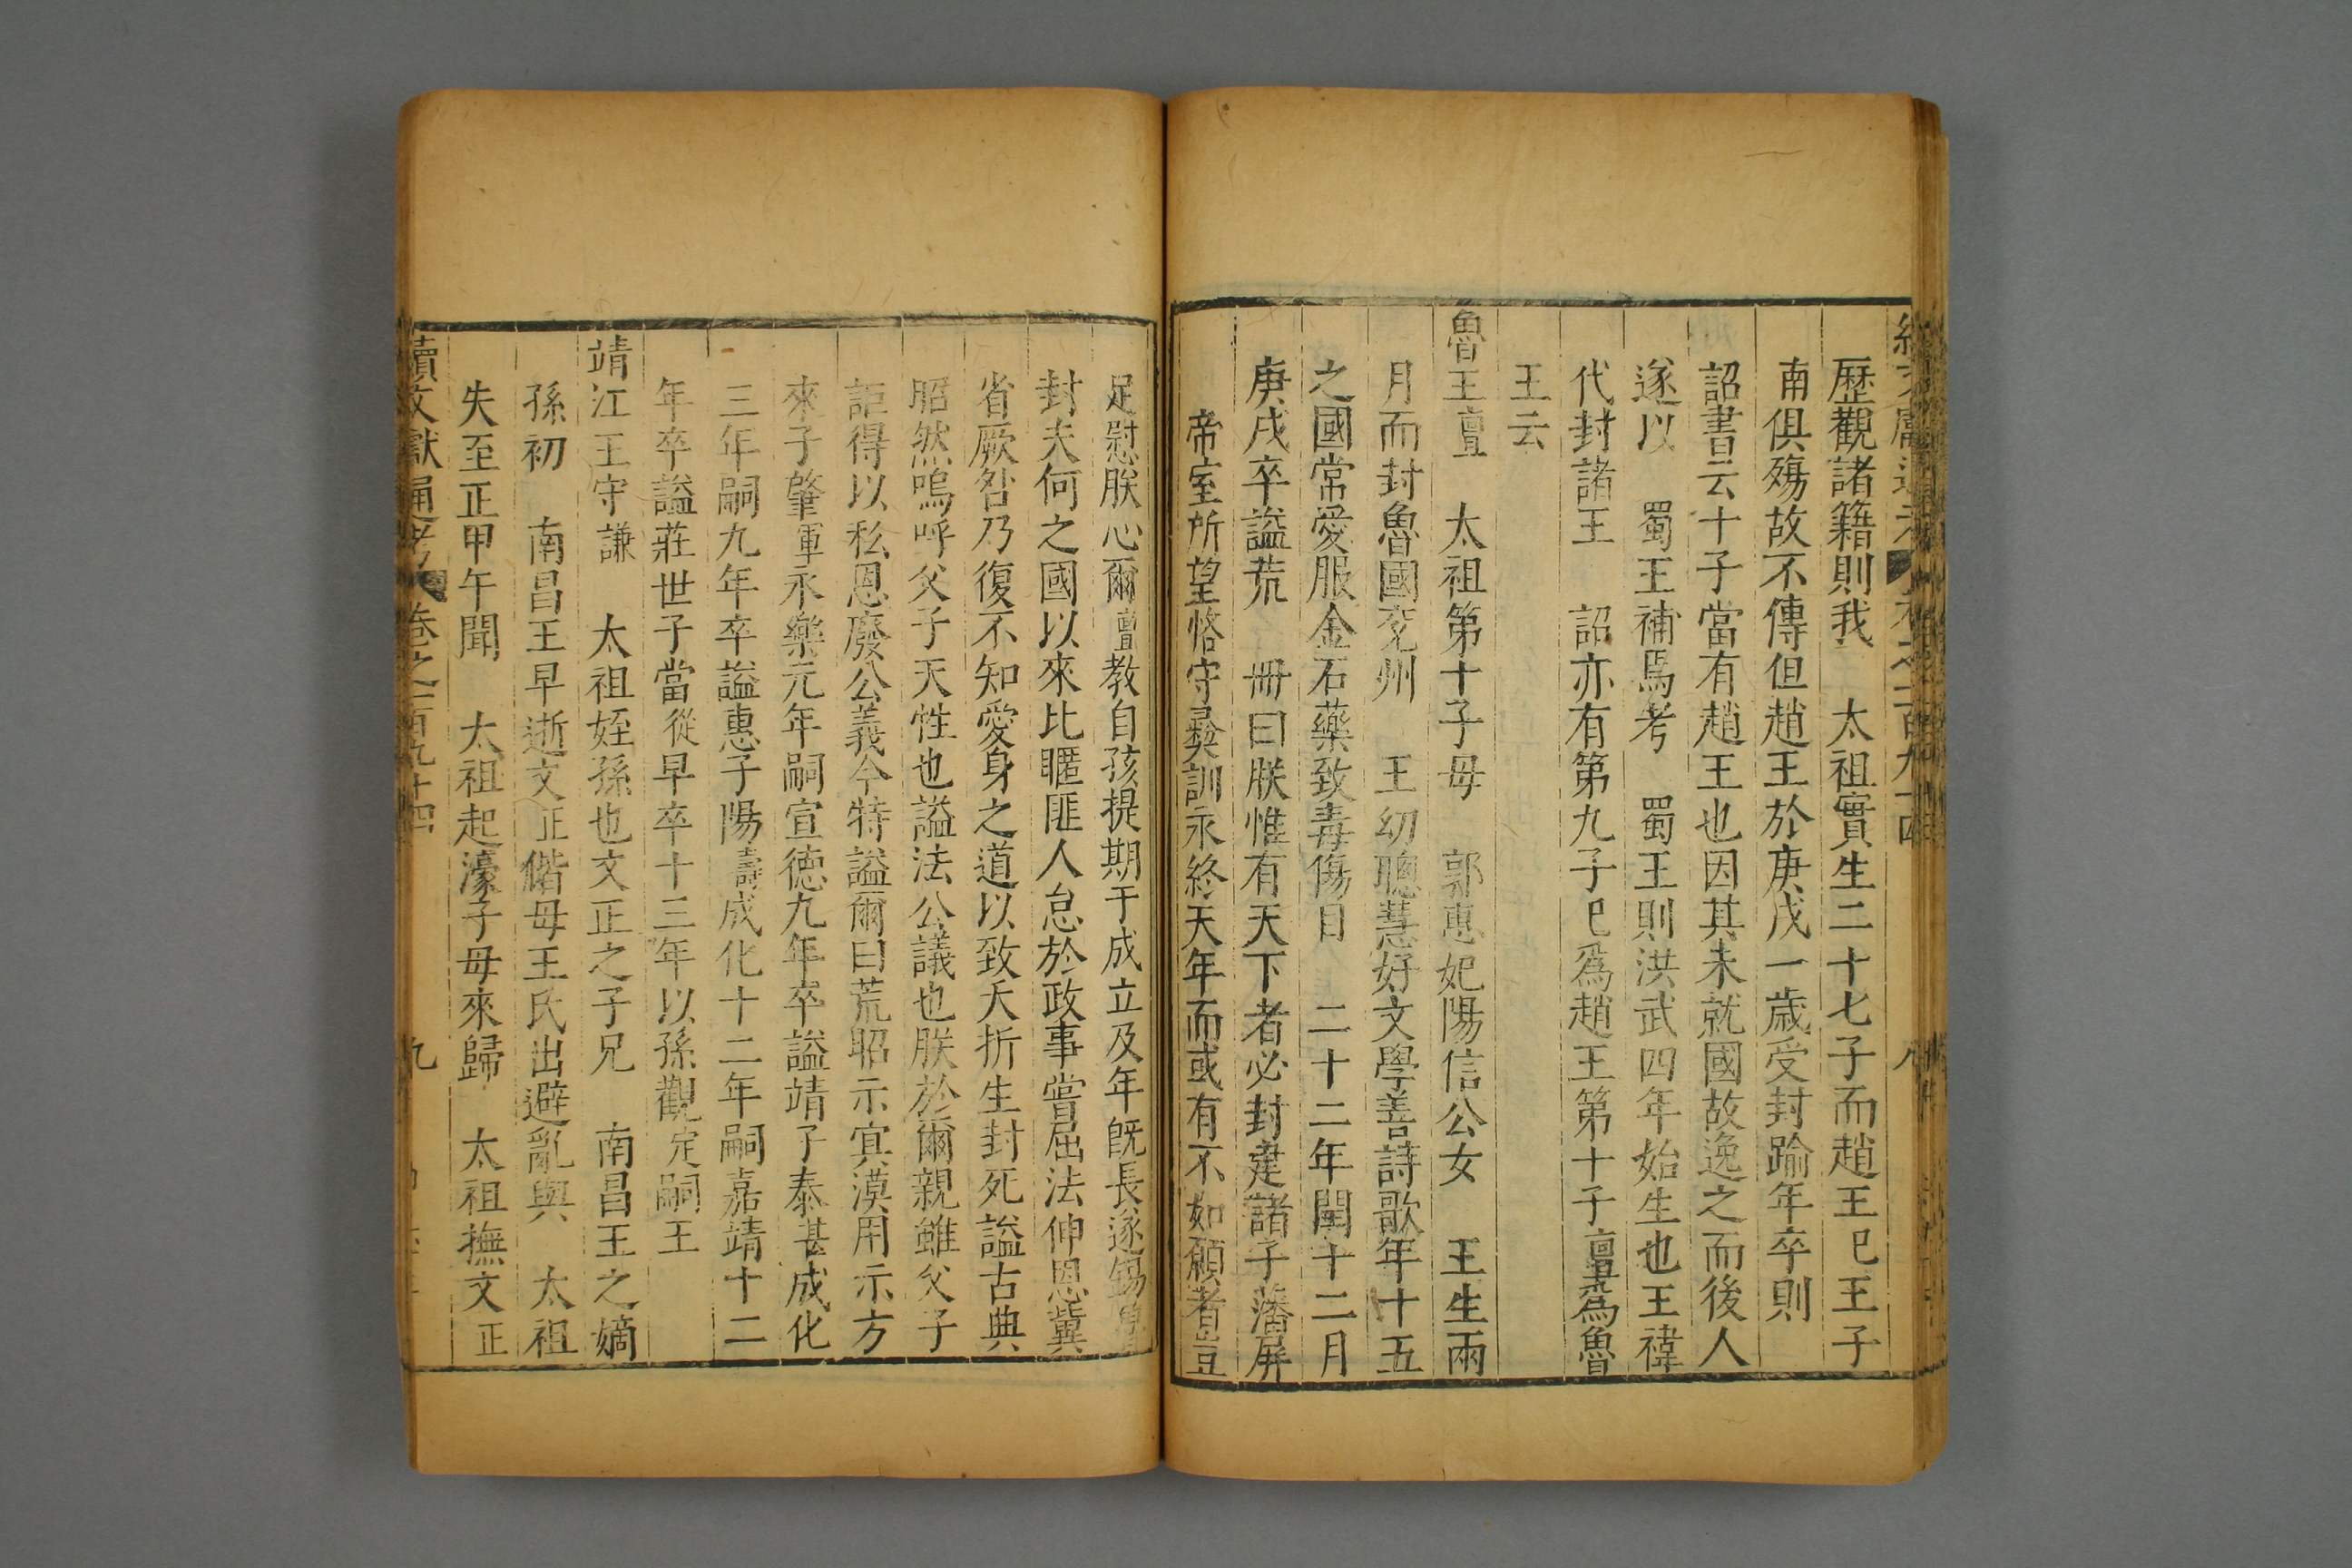 續文獻通考 卷之二百九十四 八
歷觀諸籍則我 太祖實生二十七子而趙王巳王子
南俱殤故不傳但趙王於庚戌一歲受封踰年卒則
詔書云十子當有趙王也因其未就國故逸之而後人
遂以 蜀王補焉考 蜀王則洪武四年始生也王禕
代封諸王 詔亦有第九子巳爲趙王第十子亶爲魯
王云
魯王亶 太祖第十子母 郭惠妃陽信公女 王生兩
月而封魯國兖州 王幼聰慧好文學善詩歌年十五
之國常愛服金石藥致毒傷目 二十二年閏十二月
庚戌卒謚荒 冊曰朕惟有天下者必封建諸子藩屏
帝室所望恪守彝訓永終天年而或有不如願者豈
足慰朕心爾亶教自孩提期于成立及年旣長遂錫
封夫何之國以來比暱匪人怠於政事嘗屈法伸恩冀
省厥咎乃復不知愛身之道以致夭折生封死謚古典
昭然嗚呼父子天性也謚法公議也朕於爾親雖父子
詎得以私恩廢公義今特謚爾曰荒昭示寘漠用示方
來子肇煇永樂元年嗣宣德九年卒謚靖子泰甚成化
三年嗣九年卒謚惠子陽壽成化十二年嗣嘉靖十二
年卒謚莊世子當從早卒十三年以孫觀定嗣王
靖江王守謙 太祖姪孫也文正之子兄 南昌王之嫡
孫初 南昌王早逝文正偕母王氏出避亂與 太祖
失至正甲午聞 太祖起濠子母來歸 太祖撫文正
續文獻通考 卷之二百九十四 九